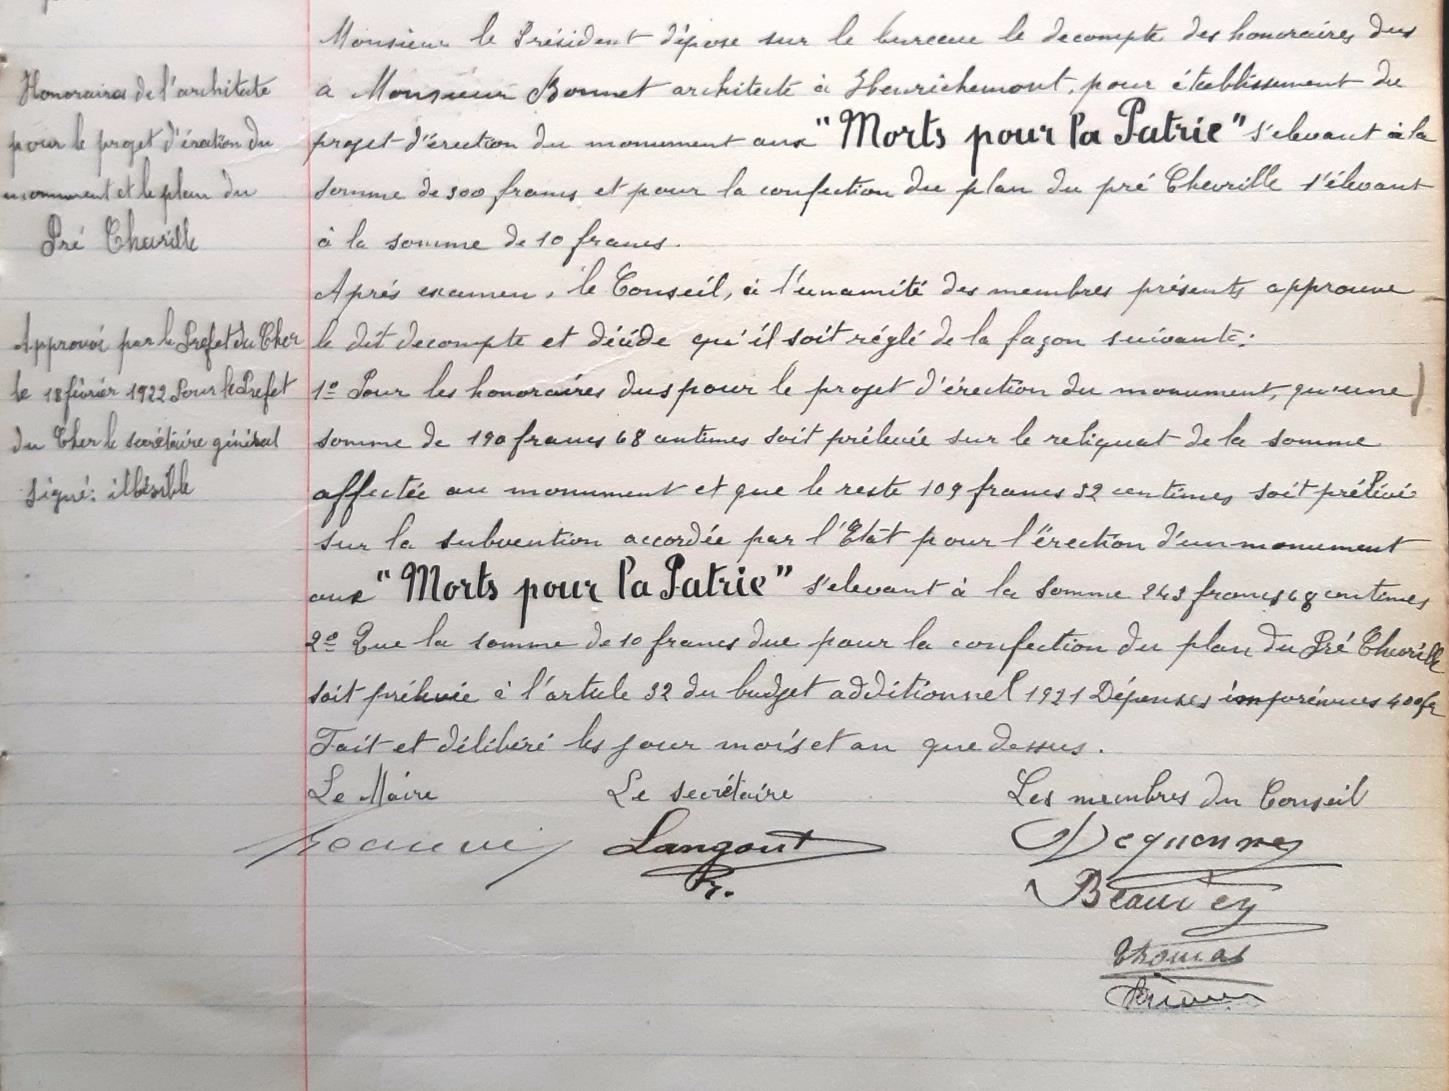 Honoraires de l'architecte
pour le projet d'érection du
monument et le plan du
Pré Chevrille
Approuvé par le Préfet du Cher
le 18 février 1922 Pour le Préfet
du Cher le secrétaire général
signé: illisible
Monsieur le Président dépose sur le bureau le decompte des honoraires dus
a Monsieur Bonnet architecte à Henrichemont, pour établissement du
projet d'érection du monument aux "Morts pour la Patrie" s'elevant à la
somme de 300 francs et pour la confection du plan du pré Chevrille s'élevant
à la somme de 10 francs.
Après examen, le Conseil, à l'unamité des membres présents approuve
le dit decompte et décide qu'il soit réglé de la façon suivante:
1º Pour les honoraires dus pour le projet d'érection du monument, qu'une
somme de 190 francs 68 centimes soit prélevée sur le reliquat de la somme
affectée au monument et que le reste 109 francs 32 centimes soit prélévé
sur la subvention accordée par l'Etat pour l'érection d'un monument
aux "Morts pour la Patrie" s'elevant à la somme 243 francs 68 centimes
2º Que la somme de 10 francs due pour la confection du plan du Pré Chevrille
soit prélevée à l'article 32 du budget additionnel 1921 Dépenses imprévues 400 fr
Fait et délibéré les jour mois et an que dessus.
Le Maire Le secrétaire Les membres du Conseil
Langout Dequenne
Beauvey
Thomas